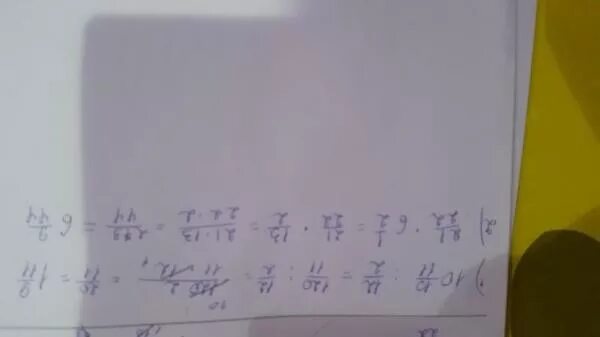 ) 10 10/11 : 12/2 = 120/11 : 12/2 = 120 · 2/11 · 12 = 20/11 = 1 9/11
2) 21/22 · 6 1/2 = 21/22 · 13/2 = 21 · 13/22 · 2 = 273/44 = 6 9/44